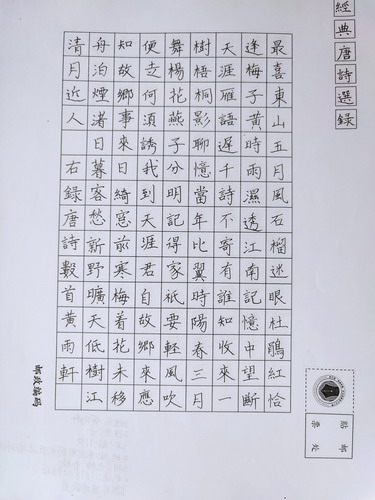 經典唐詩選錄
最喜東山五月風石榴迷眼杜鵑紅恰
逢梅子黃時雨濕透江南記憶中望斷
天涯雁語遲千詩不寄有誰知收來一
樹梧桐影聊憶當年比翼時陽春三月
舞楊花燕子分明記得家祇要輕風吹
便去何須誘我到天涯君自故鄉來應
知故鄉事來日綺窓前寒梅着花未移
舟泊煙渚日暮客愁新野曠天低樹江
清月近人 右錄唐詩數首黃雨軒
邮政编码
貼郵
票处